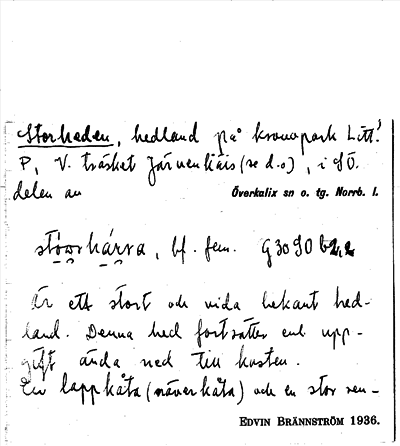 Storheden, hedland på kronopark Litt.
P, V. träsket Järvenkäis (se d.o), i SÖ.
delen av
Överkalix sn o. tg. Norrb. l.
bf. fem. G 30 90 b 2,2
Är ett stort och vida bekant hed-
land. Denna hed fortsätter enl upp-
gift ända ned till kusten.
En lappkåta (näverkåta) och en stor ren-
EDVIN BRÄNNSTRÖM 1936.